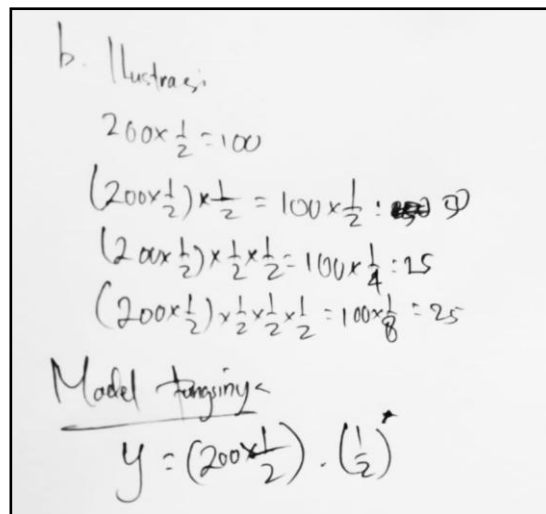 b. Ilustrasi
200 × 1/2 = 100
(200 × 1/2) × 1/2 = 100 × 1/2 :
(200 × 1/2) × 1/2 × 1/2 = 100 × 1/4 : 25
(200 × 1/2) × 1/2 × 1/2 × 1/2 = 100 × 1/8 = 25
Model fungsinya
y = (200 × 1/2) . (1/2)